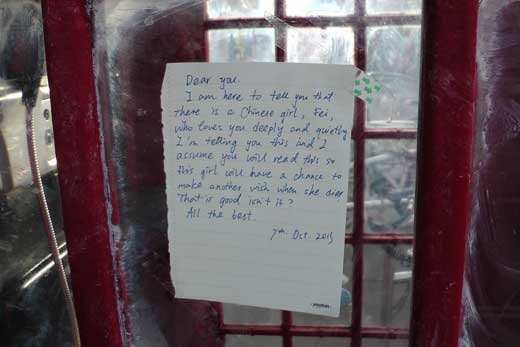 Dear you.
I am here to tell you that
there is a Chinese girl, Fei,
who loves you deeply and quietly
I'm telling you this and I
assume you will read this so
this girl will have a chance to
make another wish when she dies
That is good isn't it?
All the best.
7th Oct. 2015